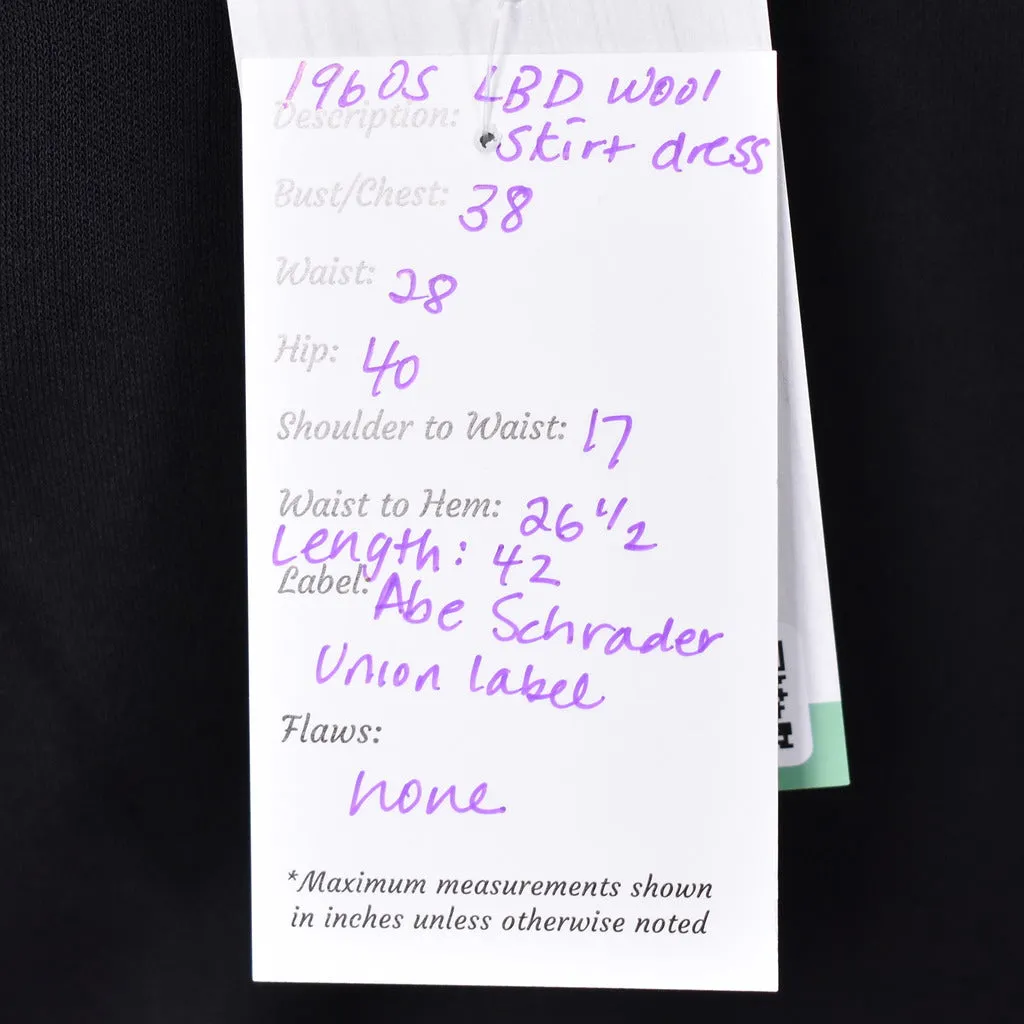 1960S LBD wool
Description:
Skirt dress
Bust/Chest: 38
Waist: 28
Hip: 40
Shoulder to Waist: 17
Waist to Hem: 26 1/2
Length: 42
Label: Abe Schrader
Union Label
Flaws:
none
*Maximum measurements shown
in inches unless otherwise noted